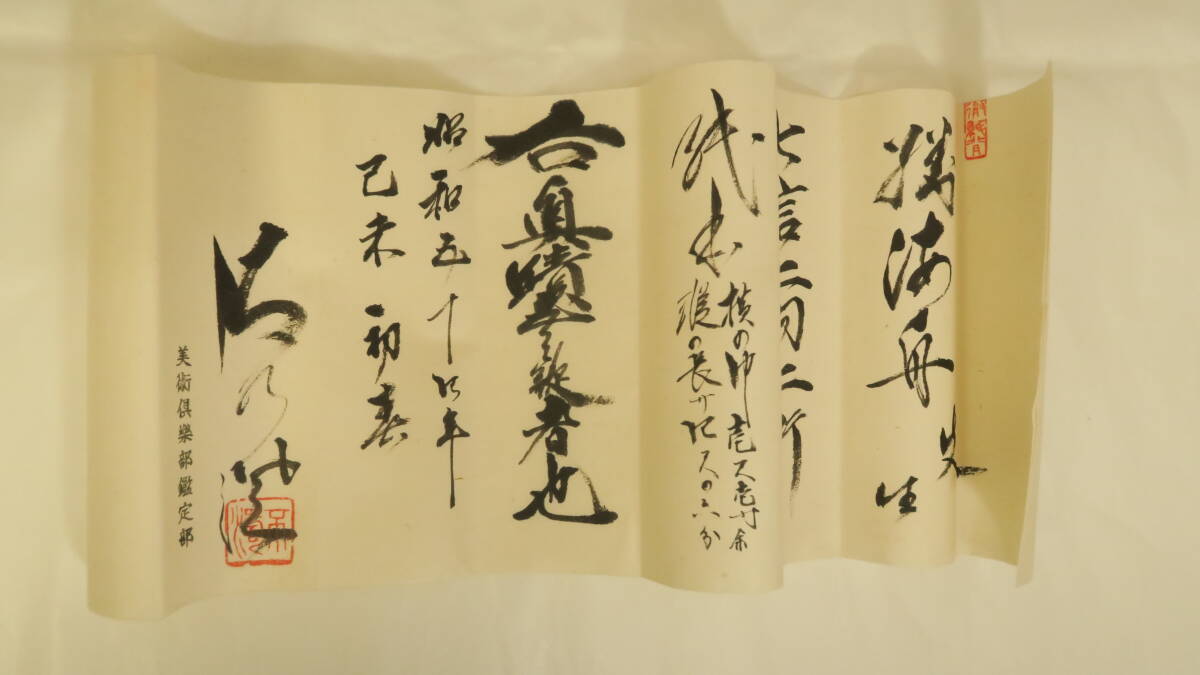 勝海舟
七言二句二行
紙本
横の巾 壱尺壱寸余
縦の長サ四尺
右眞蹟無疑者也
昭和五十四年
己未初春
美術倶樂部鑑定部